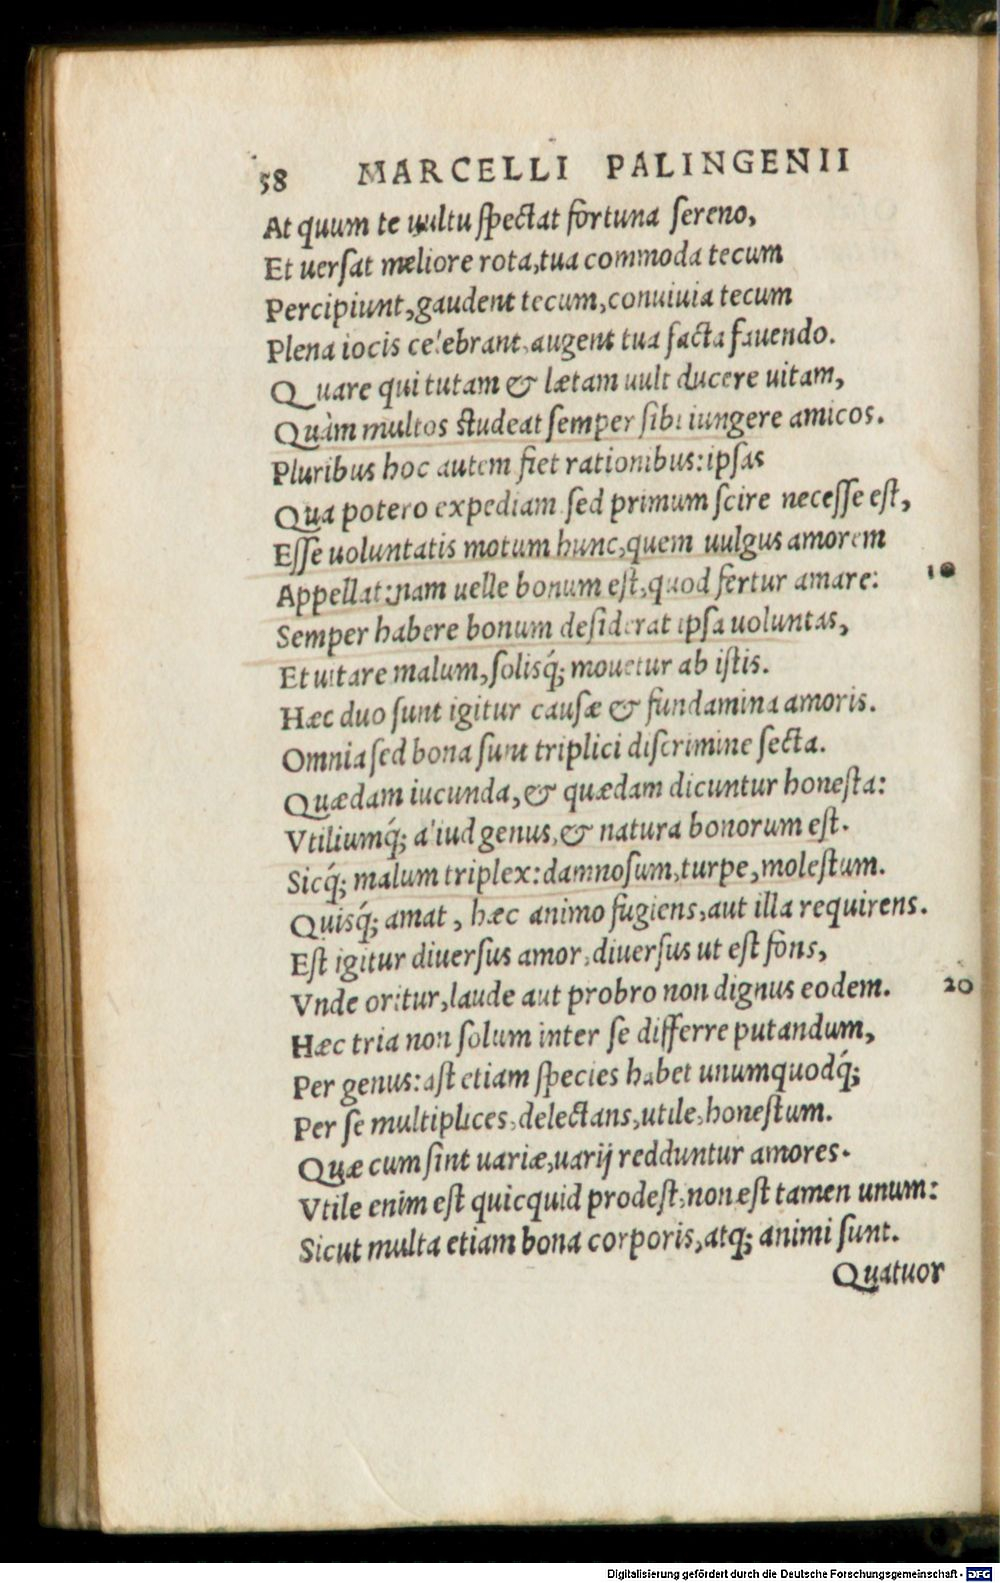 58 MARCELLI PALINGENII
At quum te uultu ſpectat fortuna ſereno,
Et uerſat meliore rota, tua commoda tecum
Percipiunt, gaudent tecum, conuiuia tecum
Plena iocis celebrant, augent tua facta fauendo.
Quare qui tutam & lætam uult ducere uitam,
Quàm multos ſtudeat ſemper ſibi iungere amicos.
Pluribus hoc autem fiet rationibus: ipſas
Qua potero expediam. ſed primum ſcire neceſſe eſt,
Eſſe uoluntatis motum hunc, quem uulgus amorem
Appellat: nam uelle bonum eſt, quod fertur amare: 10
Semper habere bonum deſiderat ipſa uoluntas,
Et uitare malum, ſolisq́; mouetur ab iſtis.
Hæc duo ſunt igitur cauſæ & fundamina amoris.
Omnia ſed bona ſunt triplici diſcrimine ſecta.
Quædam iucunda, & quædam dicuntur honeſta:
Vtiliumq́; aliud genus, & natura bonorum eſt.
Sicq́; malum triplex: damnoſum, turpe, moleſtum.
Quisq́; amat, hæc animo fugiens, aut illa requirens.
Eſt igitur diuerſus amor, diuerſus ut eſt fons,
Vnde oritur, laude aut probro non dignus eodem. 20
Hæc tria non ſolum inter ſe differre putandum,
Per genus: aſt etiam ſpecies habet unumquodq́;
Per ſe multiplices, delectans, utile, honeſtum.
Quæ cum ſint uariæ, uarij redduntur amores.
Vtile enim eſt quicquid prodeſt, non eſt tamen unum:
Sicut multa etiam bona corporis, atq; animi ſunt.
Quatuor
Digitalisierung gefördert durch die Deutsche Forschungsgemeinschaft - DFG